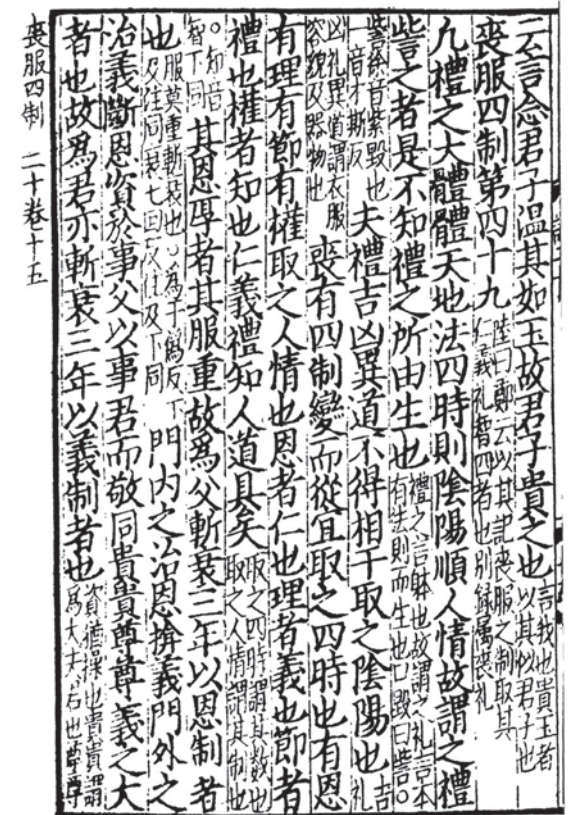 云言念君子温其如玉故君子貴之也言我也貴玉者以其似君子也
喪服四制第四十九陸曰鄭云以其記喪服之制取其仁義礼智四者也別録属喪礼
凢禮之大體體天地法四時則陰陽順人情故謂之禮
訾之者是不知禮之所由生也禮之言躰也故謂之礼言本有法則而生也口毀曰訾○
訾徐音紫毀也一音才斯反夫禮吉凶異道不得相干取之陰陽也吉礼
凶礼異道謂衣服容貌及器物也喪有四制變而從宜取之四時也有恩
有理有節有權取之人情也恩者仁也理者義也節者
禮也權者知也仁義禮知人道具矣取之四時謂其數也取之人情謂其制也
○知音智下同其恩厚者其服重故爲父斬衰三年以恩制者
也服莫重斬衰也○爲于僞反下及注同衰七回反注及下同門內之治恩揜義門外之
治義斷恩資於事父以事君而敬同貴貴尊尊義之大
者也故爲君亦斬衰三年以義制者也資猶操也貴貴謂爲大夫君也尊尊
喪服四制 二十卷十五